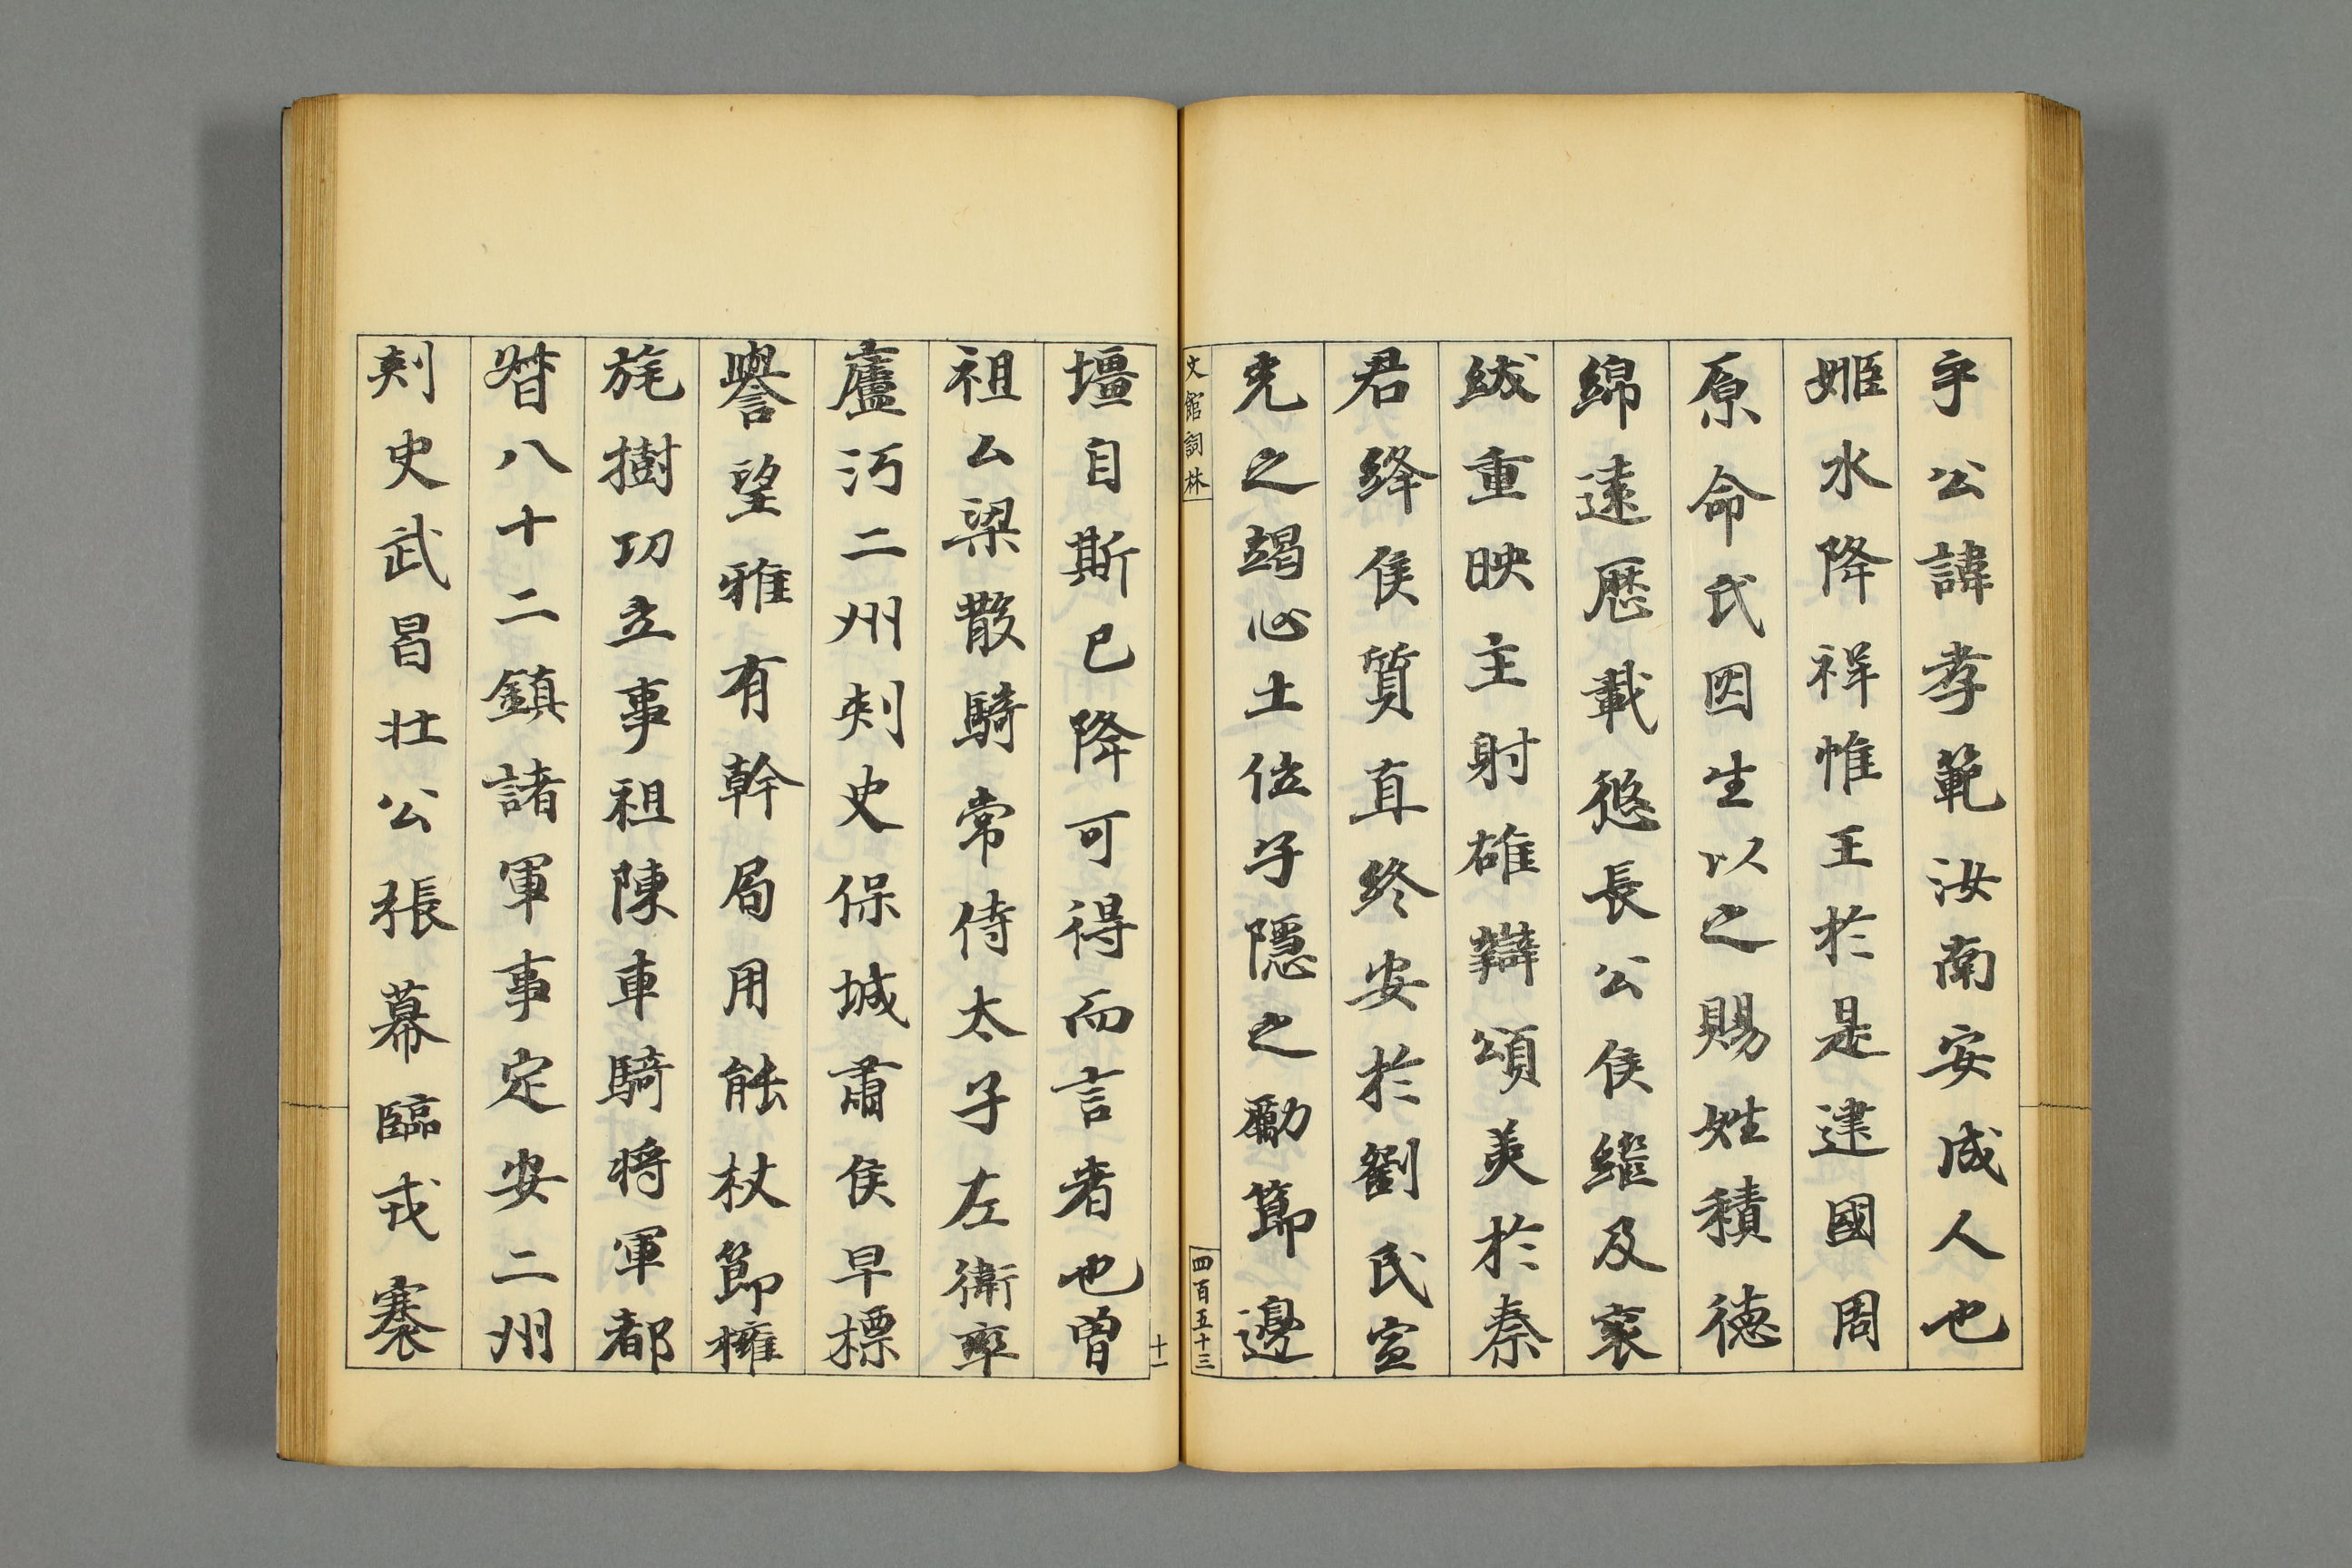 字公諱孝範汝南安成人也
姬水降祥惟王於是建國周
原命氏因生以之賜姓積德
綿遠歷載悠長公侯繼及袞
紱重映主射雄辯頌美於秦
君絳侯質直終安於劉氏宣
光之竭心土位子隱之勵節邊
文館詞林
四百五十三
十一
壃自斯已降可得而言者也曾
祖厶梁散騎常侍太子左衛率
廬沔二州刾史保城肅侯早標
譽望雅有幹局用能杖節擁
旄樹功立事祖陳車騎将軍都
督八十二鎮諸軍事定安二州
刾史武昌壮公張幕臨戎褰